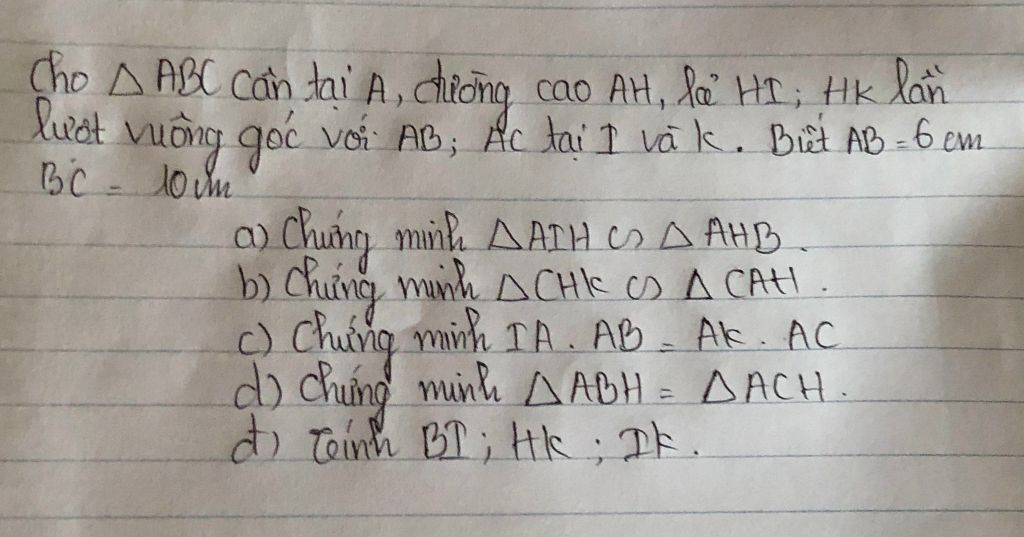 Cho △ ABC cân tại A, đường cao AH, kẻ HI; HK lần
lượt vuông góc với AB; AC tại I và K. Biết AB = 6 cm
BC = 10 cm
a) Chứng minh △AIH ∽ △AHB.
b) Chứng minh △CHK ∽ △CAH.
c) Chứng minh IA. AB = AK. AC
d) Chứng minh △ABH = △ACH.
đ) Tính BI; HK; IK.